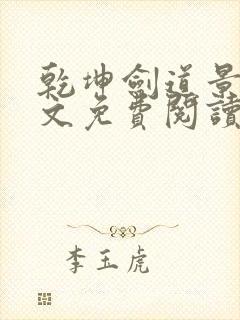 乾坤劍道景
文免費閱讀
李玉虎